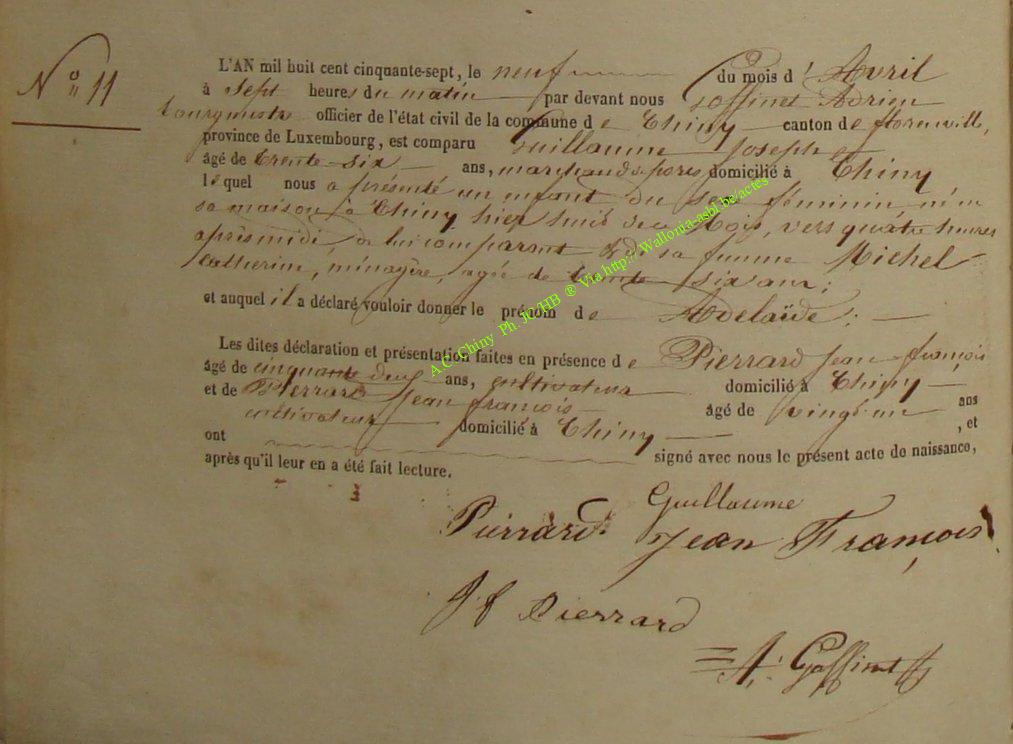 N° 11
L'AN mil huit cent cinquante-sept, le neuf du mois d' Avril
à sept heures du matin par devant nous Goffinet Adrien
bourgmestre officier de l'état civil de la commune de Chiny canton de florenville,
province de Luxembourg, est comparu Guillaume Joseph
âgé de trente-six ans, marchand de porcs domicilié à Chiny
lequel nous a présenté un enfant du sexe féminin, né en
sa maison à Chiny hier huit du mois, vers quatre heures
après midi, de lui comparant et de sa femme Michel
Catherine, ménagère, agée de trente six ans;
et auquel il a déclaré vouloir donner le prénom de Adelaïde;
Les dites déclaration et présentation faites en présence de Pierrard Jean françois
âgé de cinquante deux ans, cultivateur domicilié à Chiny
et de Pierrard Jean françois âgé de vingt un ans
cultivateur domicilié à Chiny, et
ont signé avec nous le présent acte de naissance,
après qu'il leur en a été fait lecture.
Guillaume
Pierrard Jean François
J f Pierrard
A. Goffinet
A.C. Chiny Ph. Jc. HB ® Via http://Wallonia-asbl.be/actes